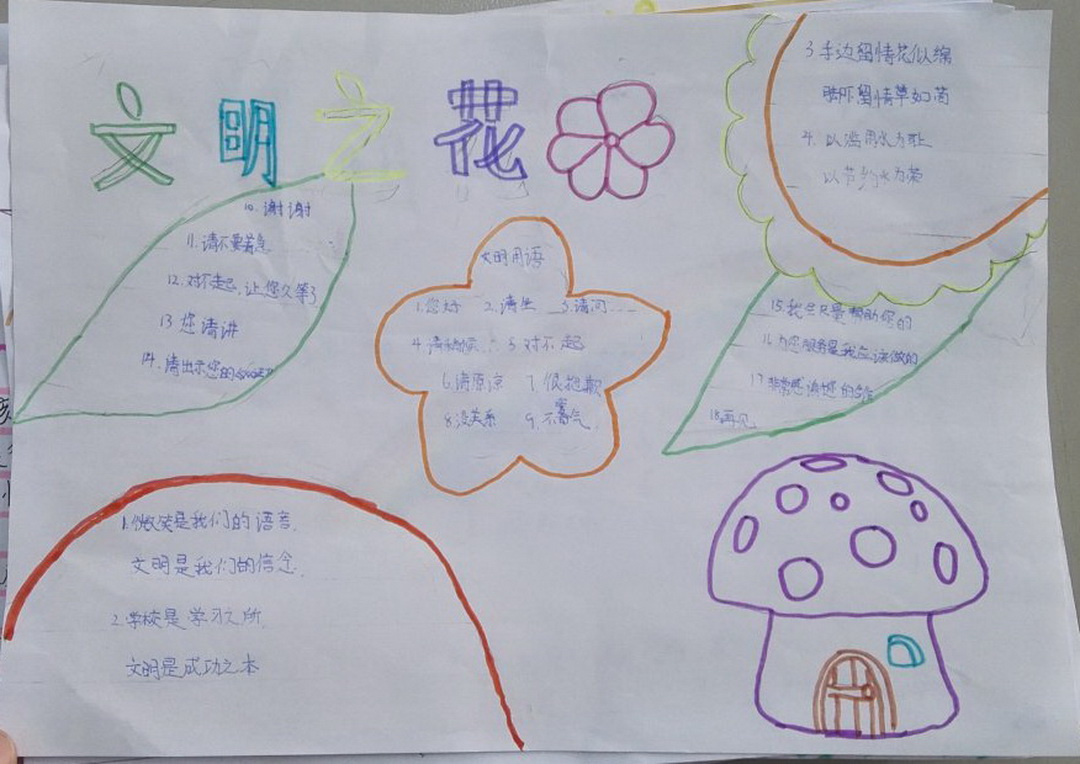 文明之花
文明用语
1.您好 2.请坐 3.请问……
4.请稍候 5.对不起
6.请原谅 7.很抱歉
8.没关系 9.不客气
10.谢谢
11.请不要着急
12.对不起,让您久等了
13.您请讲
14.请出示您的
15.我会尽量帮助您的
16.为您服务是我应该做的
17.非常感谢您的
18.再见
1.微笑是我们的语言,
文明是我们的信念.
2.学校是学习之所,
文明是成功之本
3.手边留情花似锦
脚下留情草如茵
4.以滥用水为耻
以节约水为荣